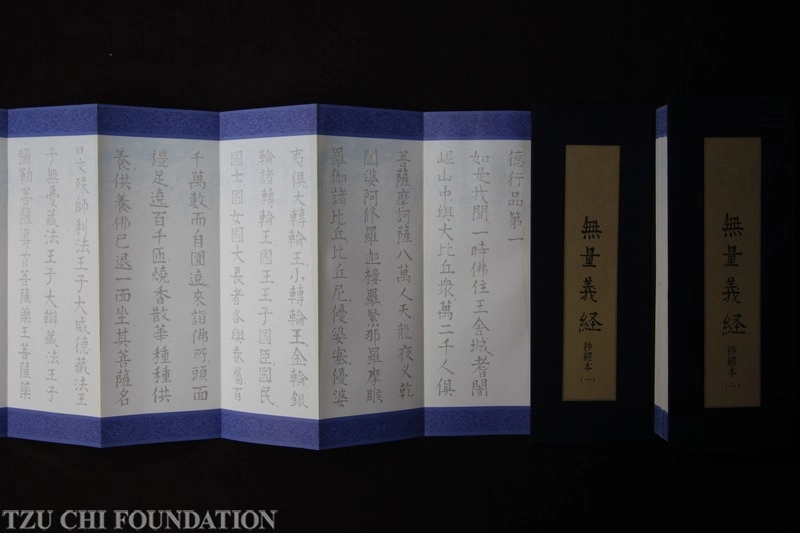 無量義経
抄經本
(二)
無量義経
抄經本
(一)
德行品第一
如是我聞一時佛住王舍城耆闍
崛山中與大比丘衆萬二千人俱
菩薩摩訶薩八萬人天龍夜叉乾
闥婆阿修羅迦樓羅緊那羅摩睺
羅伽諸比丘比丘尼優婆塞優婆
夷俱大轉輪王小轉輪王金輪銀
輪諸轉輪王國王王子國臣國民
國士國女國大長者各與眷屬百
千萬數而自圍遶來詣佛所頭面
禮足遶百千匝燒香散華種種供
養供養佛已退一面坐其菩薩名
曰文殊師利法王子大威德藏法王
子無憂藏法王子大辯藏法王子
彌勒菩薩導首菩薩藥王菩薩藥
TZU CHI FOUNDATION